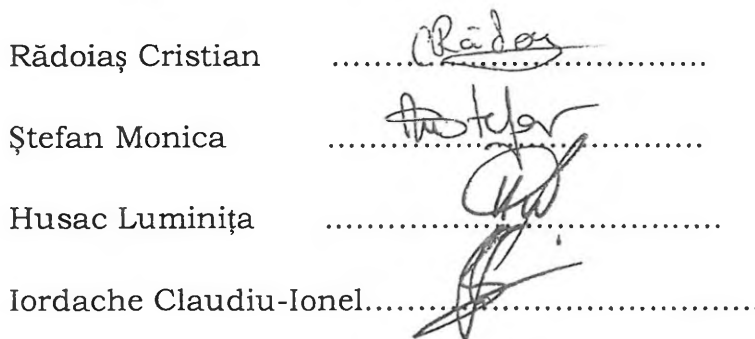 Rădoiaș Cristian ....................................
Ștefan Monica ....................................
Husac Luminița ....................................
Iordache Claudiu-Ionel....................................